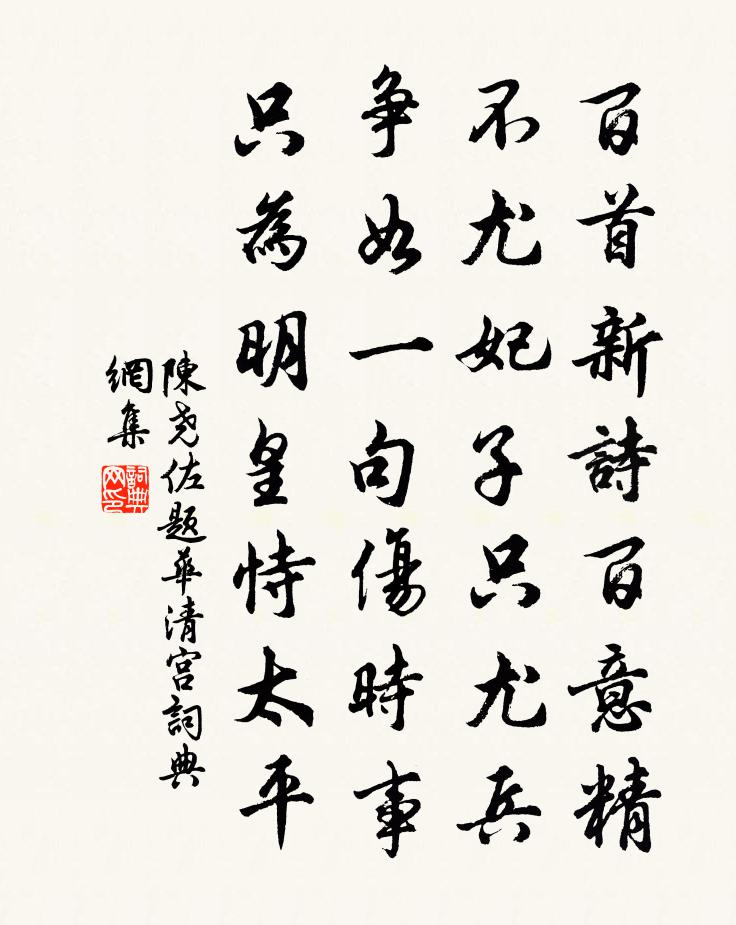 百首新詩百意精
不尤妃子只尤兵
争如一句傷時事
只為明皇恃太平
陳尧佐題華清宫詞典
網集
詞典網印